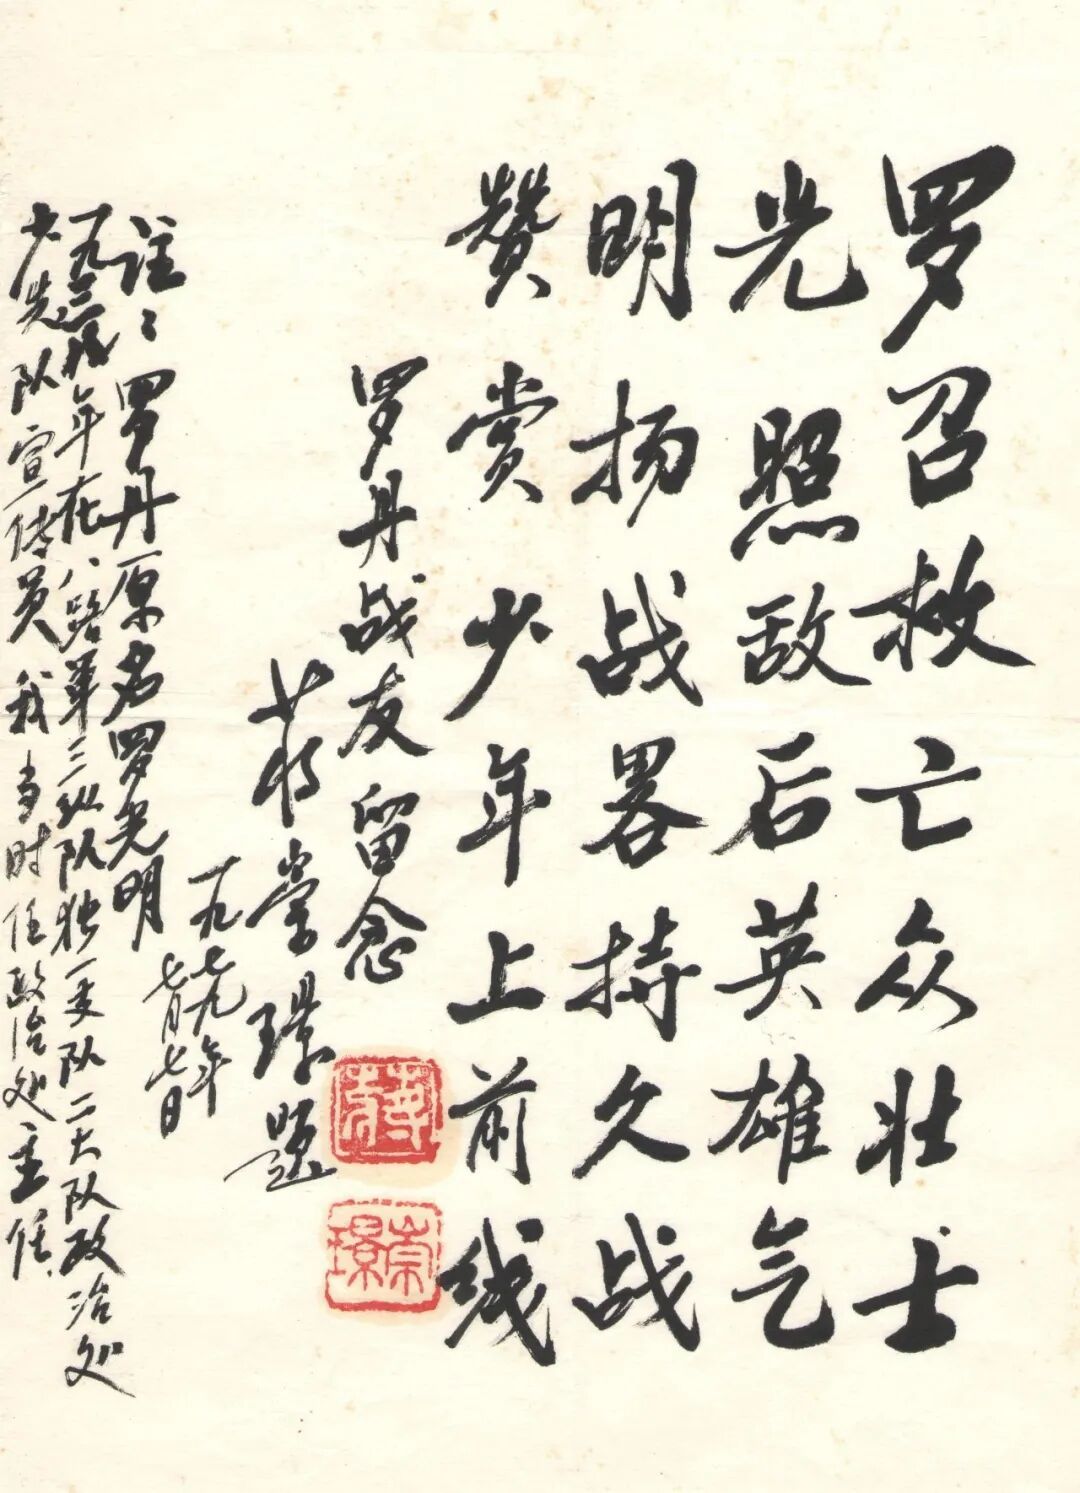 罗召救亡众壮士
光照敌后英雄气
明扬战略持久战
赞赏少年上前线
罗丹战友留念
蒋崇璟题
一九七九年
七月七日
註：罗丹原名罗光明
一九三八年在八路军三纵队独一支队二大队政治处
少先队宣传员我当时任政治处主任.
蒋
崇璟